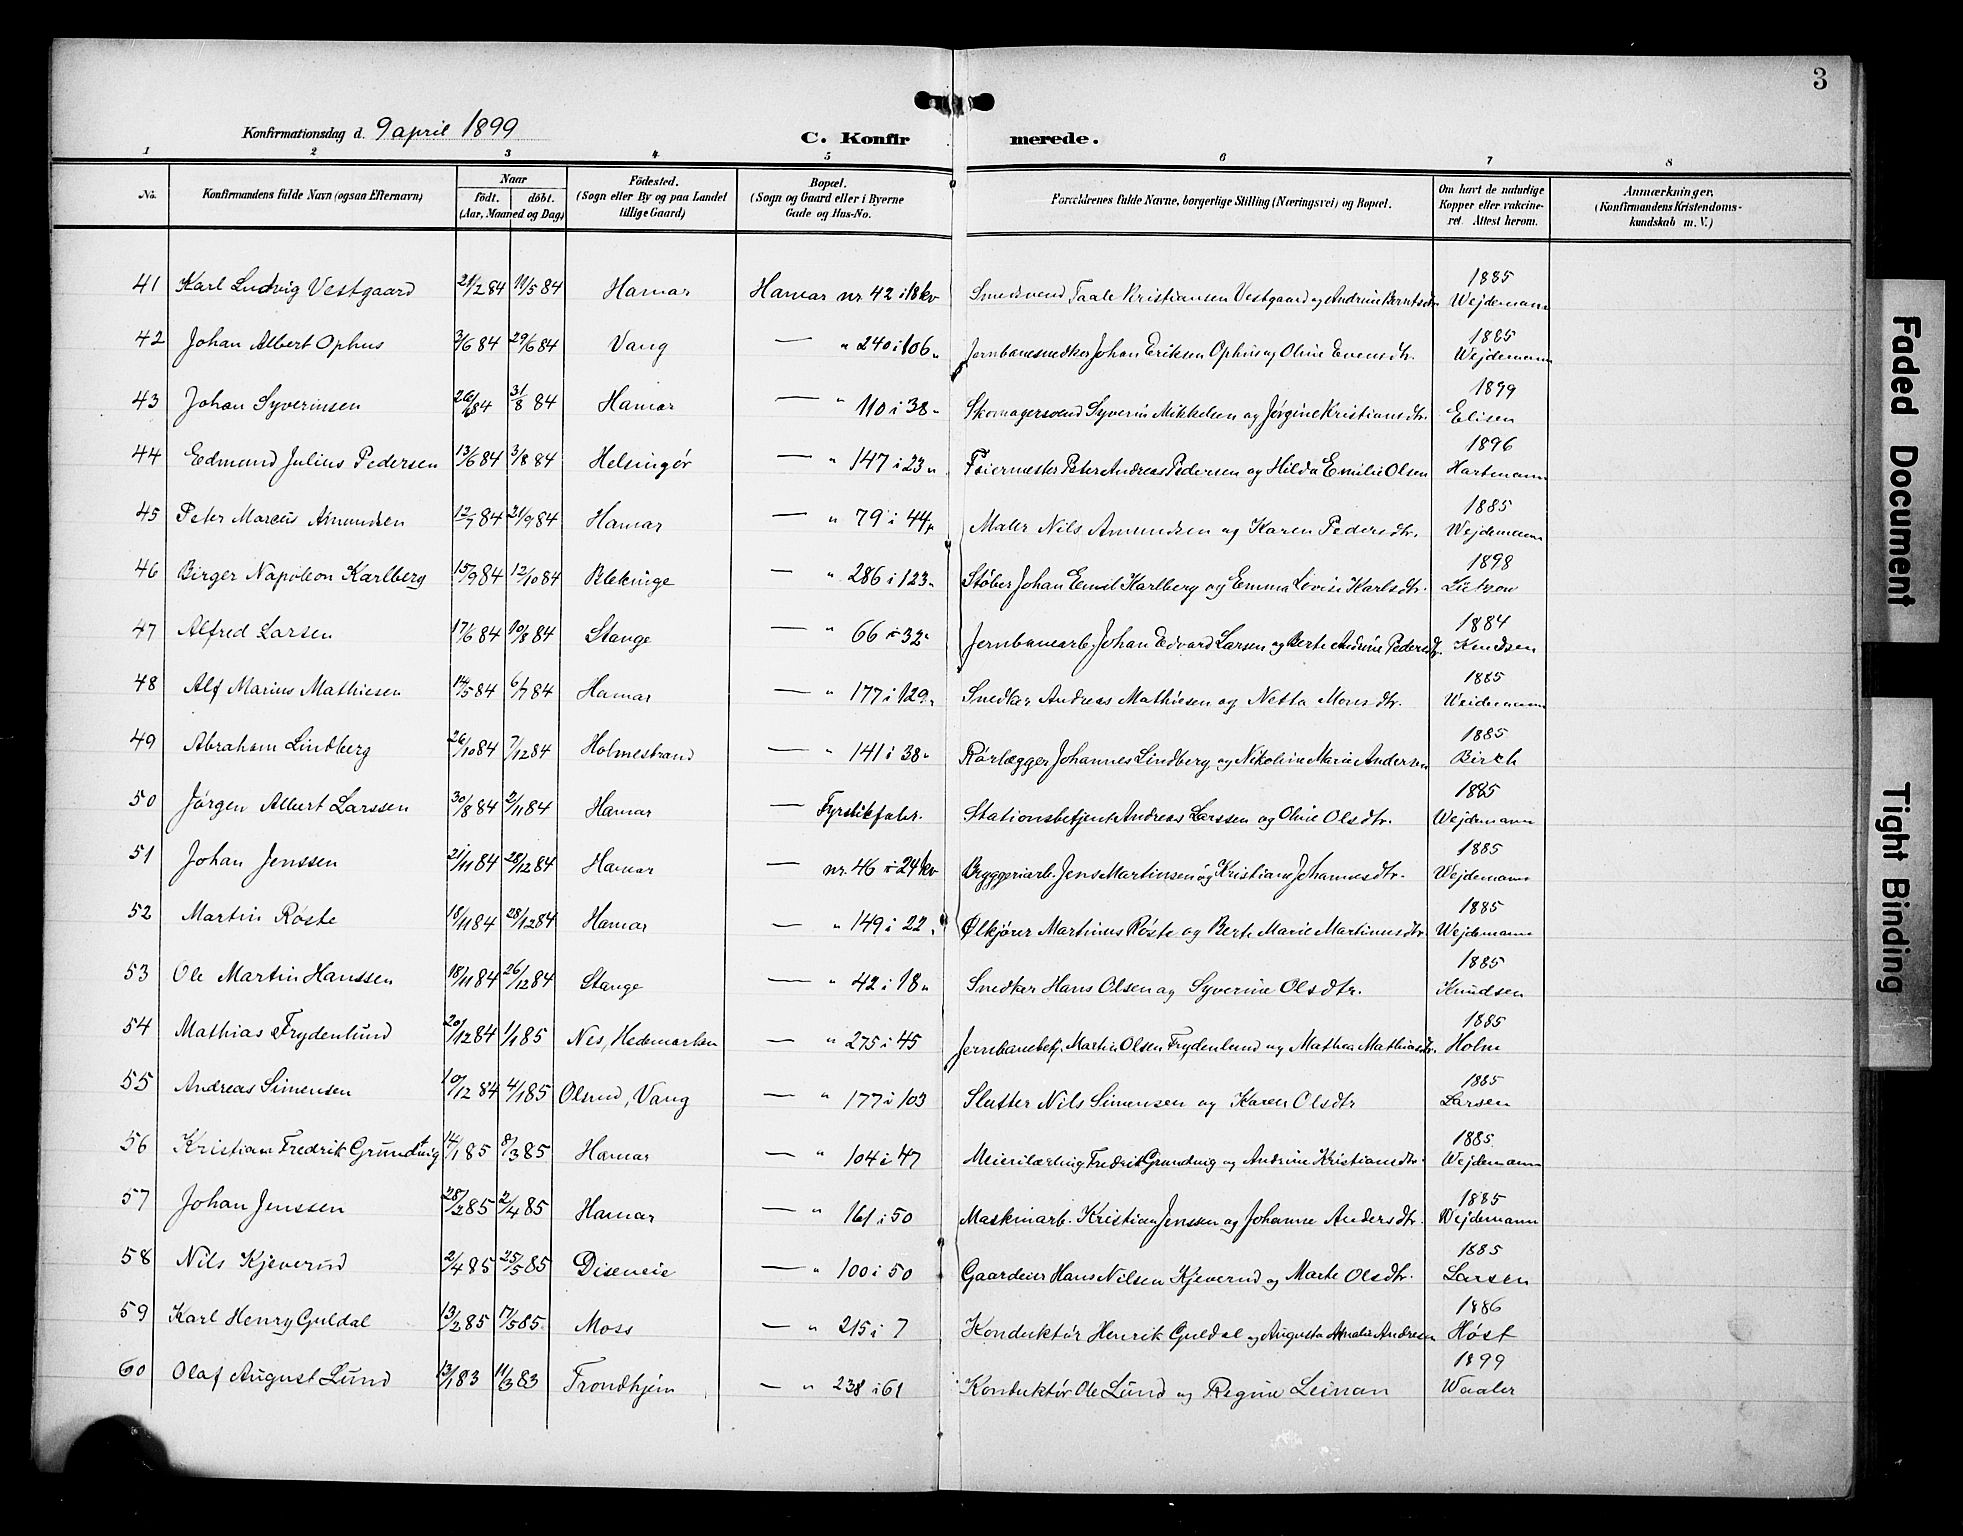 3
Konfirmationsdag d. 9 april 1899
C. Konfirmerede.
1 2 3 4 5 6 7 8
No. | Konfirmandens fulde Navn (ogsaa Efternavn) | Naar født. døbt. (Aar, Maaned og Dag) | Fødested. (Sogn eller By og paa Landet tillige Gaard) | Bopæl. (Sogn og Gaard eller i Byerne Gade og Hus-No. | Forældrenes fulde Navne, borgerlige Stilling (Næringsvei) og Bopæl. | Om havt de naturlige Kopper eller vakcineret. Attest herom. | Anmærkninger. (Konfirmandens Kristendomskundskab m. V.)
41 Karl Ludvig Vestgaard 21/2 84 11/5 84 Hamar Hamar nr 42 i 18 kv Smedsvend Taale Kristiansen Vestgaard og Andrine Berntsdtr 1885 Wejdemann
42 Johan Albert Ophus 3/6 84 29/6 84 Vang — " 240 i 106 " Jernbanesnedker Johan Eriksen Ophus og Oline Evensdtr. 1885 Wejdemann
43 Johan Syverinsen 26/6 84 31/8 84 Hamar — " 110 i 38 " Skomagersvend Syverin Mikkelsen og Jørgine Kristiansdtr. 1899 Elisen
44 Edmund Julius Pedersen 13/6 84 3/8 84 Helsingør — " 147 i 23 " Feiermester Peter Andreas Pedersen og Hilda Emilie Olsen 1896 Hartmann
45 Peter Marcus Amundsen 12/7 84 21/9 84 Hamar — " 79 i 44 " Maler Nils Amundsen og Karen Pedersdtr. 1885 Wejdemann
46 Birger Napoleon Karlberg 15/9 84 12/10 84 Blekinge — " 286 i 123 " Støber Johan Emil Karlberg og Emma Lovise Karlsdtr. 1898 Lützow
47 Alfred Larsen 17/6 84 10/8 84 Stange — " 66 i 32 " Jernbanearb. Johan Edvard Larsen og Berte Andrine Pedersdtr. 1884 Knudsen
48 Alf Marius Mathiesen 14/5 84 6/7 84 Hamar — " 177 i 129 " Snedker Andreas Mathiesen og Netta Monsdtr. 1885 Weidemann
49 Abraham Lindberg 26/10 84 7/12 84 Holmestrand — " 141 i 38 " Rørlægger Johannes Lindberg og Nikoline Marie Andersen 1885 Birch
50 Jørgen Albert Larssen 30/8 84 2/11 84 Hamar — Fyrstikfabr. Stationsbetjent Andreas Larssen og Oline Olsdtr. 1885 Wejdemann
51 Johan Jenssen 21/11 84 28/12 84 Hamar — nr. 46 i 24 kv Bryggeriarb. Jens Martinsen og Kristiane Johannesdtr. 1885 Wejdemann
52 Martin Røste 18/11 84 28/12 84 Hamar — " 149 i 22 " Ølkjører Martinus Røste og Berte Marie Martinusdtr 1885 Wejdemann
53 Ole Martin Hanssen 18/11 84 26/12 84 Stange — " 42 i 18 " Snedker Hans Olsen og Syverine Olsdtr. 1885 Knudsen
54 Mathias Frydenlund 20/12 84 1/1 85 Nes, Hedemarken — " 275 i 45 Jernbanebetj. Martin Olsen Frydenlund og Mathea Mathiasdtr. 1885 Holm
55 Andreas Simensen 10/12 84 4/1 85 Olsrud, Vang — " 177 i 103 Slutter Nils Simensen og Karen Olsdtr 1885 Larsen
56 Kristian Fredrik Grundtvig 14/1 85 8/3 85 Hamar — " 104 i 47 Meierilærling Fredrik Grundtvig og Andrine Kristiansdtr. 1885 Wejdemann
57 Johan Jenssen 28/2 85 2/4 85 Hamar — " 161 i 50 Maskinarb. Kristian Jenssen og Johanne Andersdtr. 1885 Wejdemann
58 Nils Kjeverud 2/4 85 25/5 85 Diseneie — " 100 i 50 Gaardeier Hans Nilsen Kjeverud og Marte Olsdtr. 1885 Larsen
59 Karl Henry Guldal 13/2 85 17/5 85 Moss — " 215 i 7 Konduktør Henrik Guldal og Augusta Amalie Andresen 1886 Høst
60 Olaf August Lund 13/1 83 11/3 83 Trondhjem — " 238 i 61 Konduktør Ole Lund og Regine Leinan 1899 Waaler
Faded Document
Tight Binding